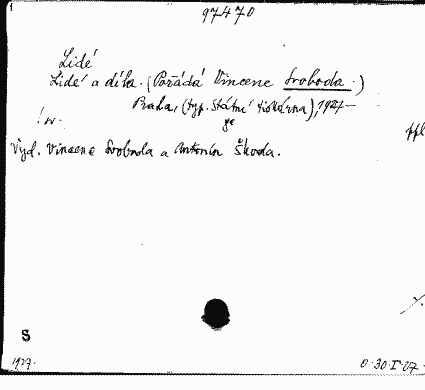 97470
Lidé
Lidé a díla. (Pořádá Vincenc Svoboda.)
Praha, (typ. Státní tiskárna), 1927-
Vyd. Vincenc Svoboda a Antonín Škoda.
S
1927.